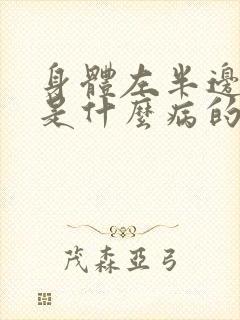 身體左半邊
是什麼病的
茂森亞弓